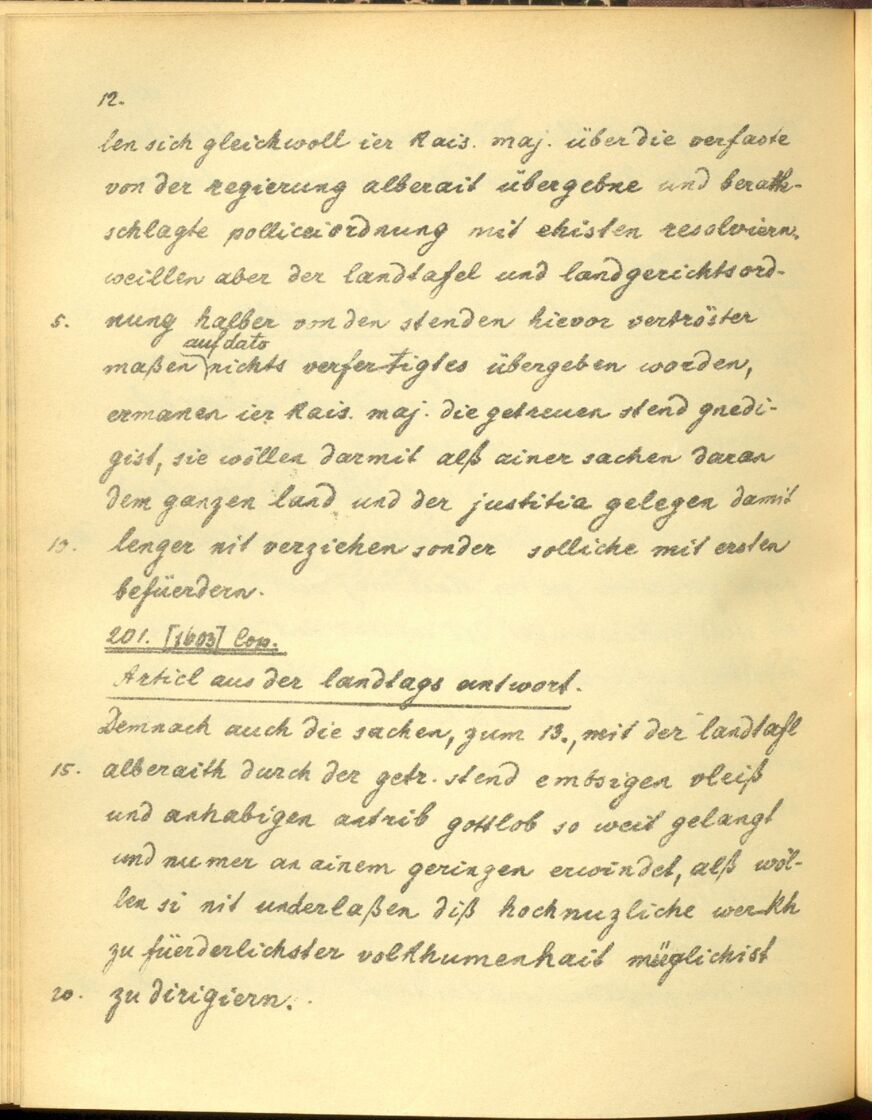 12.
len sich gleichwoll ier Kais. maj. über die verfaste
von der regierung alberait übergebne und berath-
schlagte polliceiordnung mit ehisten resolviern.
weillen aber der landtafel und landgerichtsord-
5. nung halber von den stenden hievor vertröster
auf dato
maßen nichts verfertigtes übergeben worden,
ermanen ier Kais. maj. die getreuen stend gnedi-
gist, sie wöllen darmit alß ainer sachen daran
dem ganzen land und der justitia gelegen damit
10. lenger nit verziehen sonder solliche mit ersten
befüerdern.
201. [1603] Cop.
Articl aus der landtags antwort.
Demnach auch die sachen, zum 13., mit der landtafl
15. alberaith durch der getr. stend embsigen vleiß
und anhabigen antrib gottlob so weit gelangt
und numer an ainem geringen erwindet, alß wöl-
len si nit underlaßen diß hochnuzliche werkh
zu füerderlichster volkhumenhait müglichist
20. zu dirigiern.